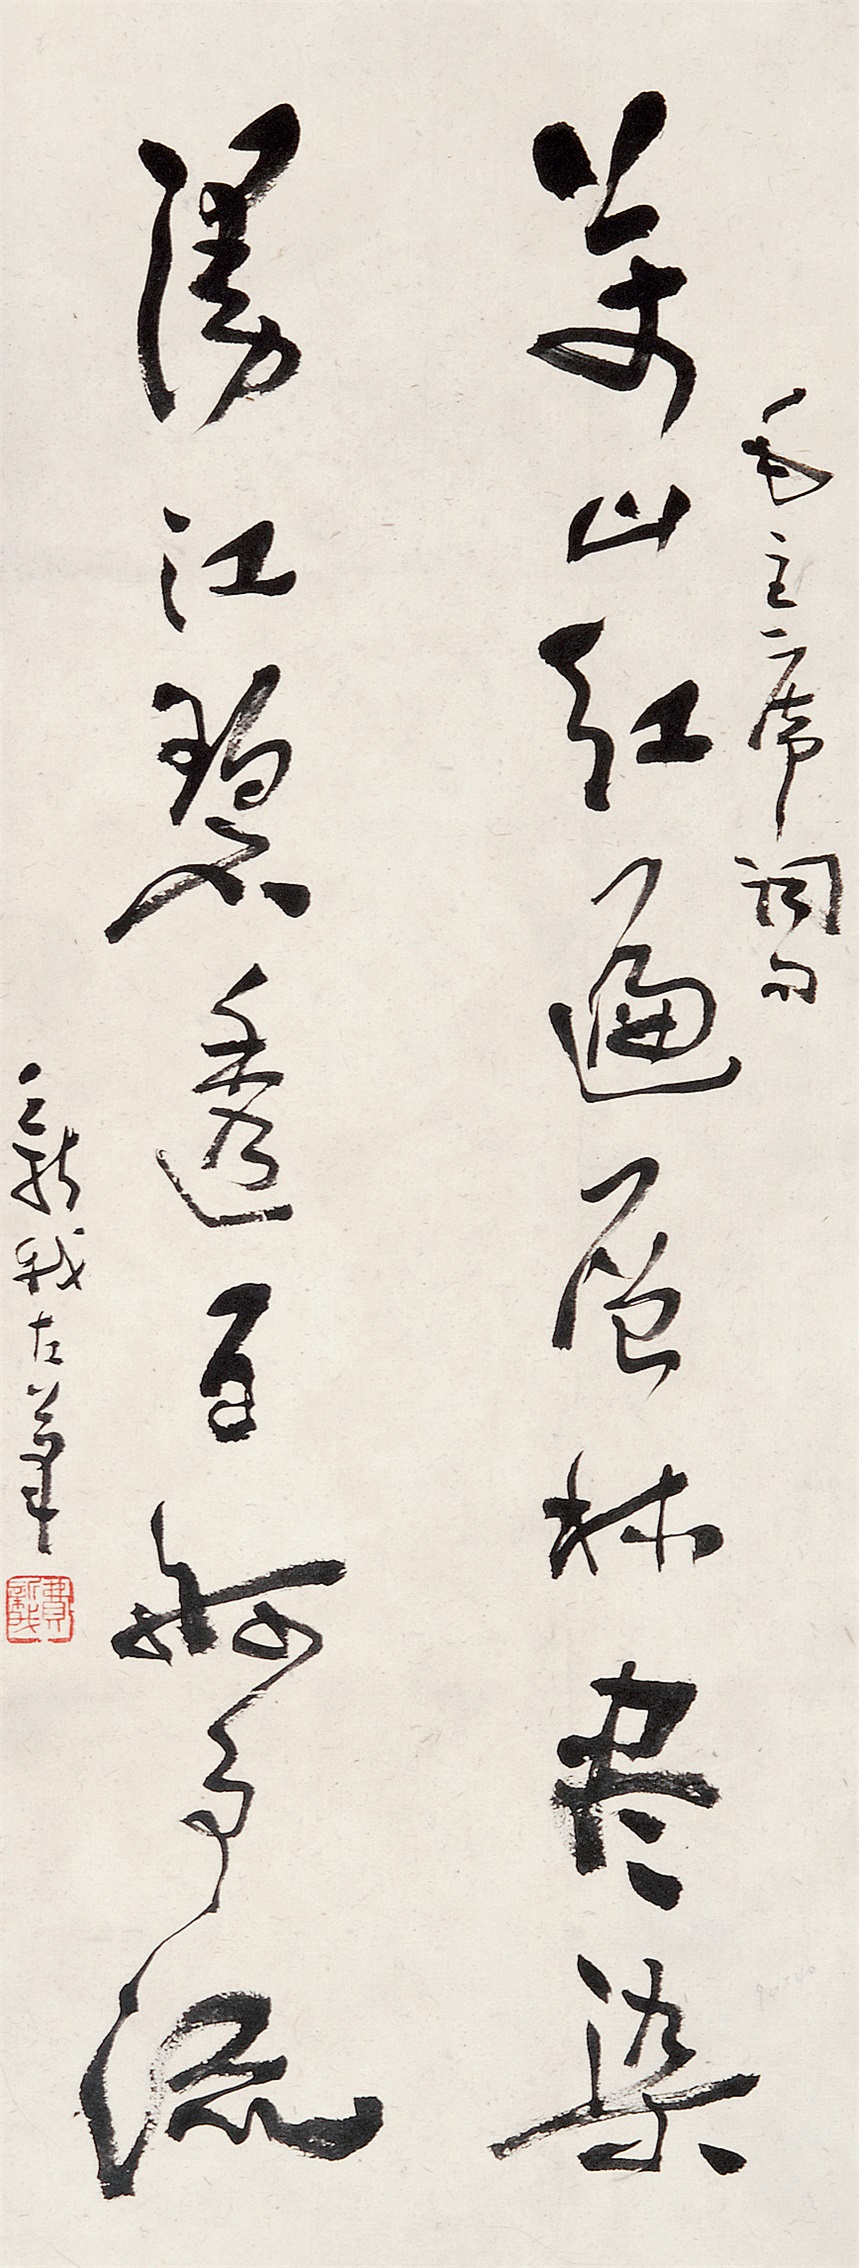 毛主席词句
万山红遍层林尽染
漫江碧透百舸争流
新我左笔
費新我